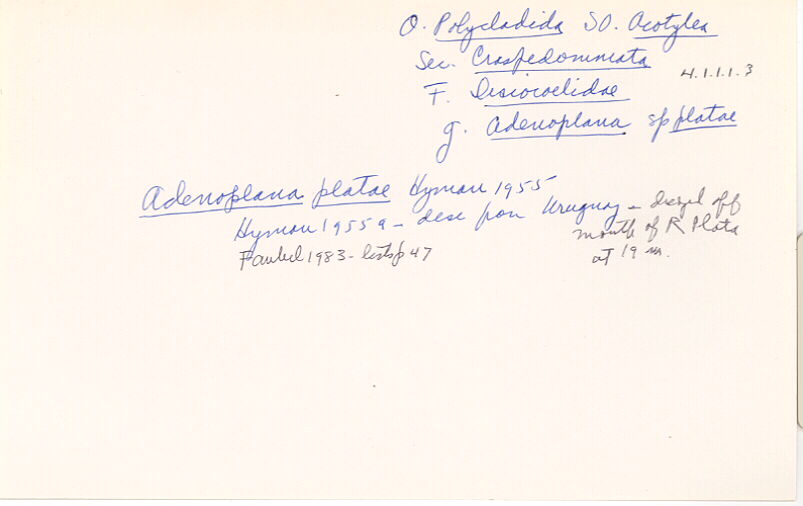 O. Polycladida SO. Acotylea
Sec. Craspedommata
4.1.1.1.3
F. Discocoelidae
g. Adenoplana sp platae
Adenoplana platae Hyman 1955
Hyman 1955a - desc from Uruguay - dredged off
mouth of R Plata
at 19 m.
Faubel 1983 - lists p 47